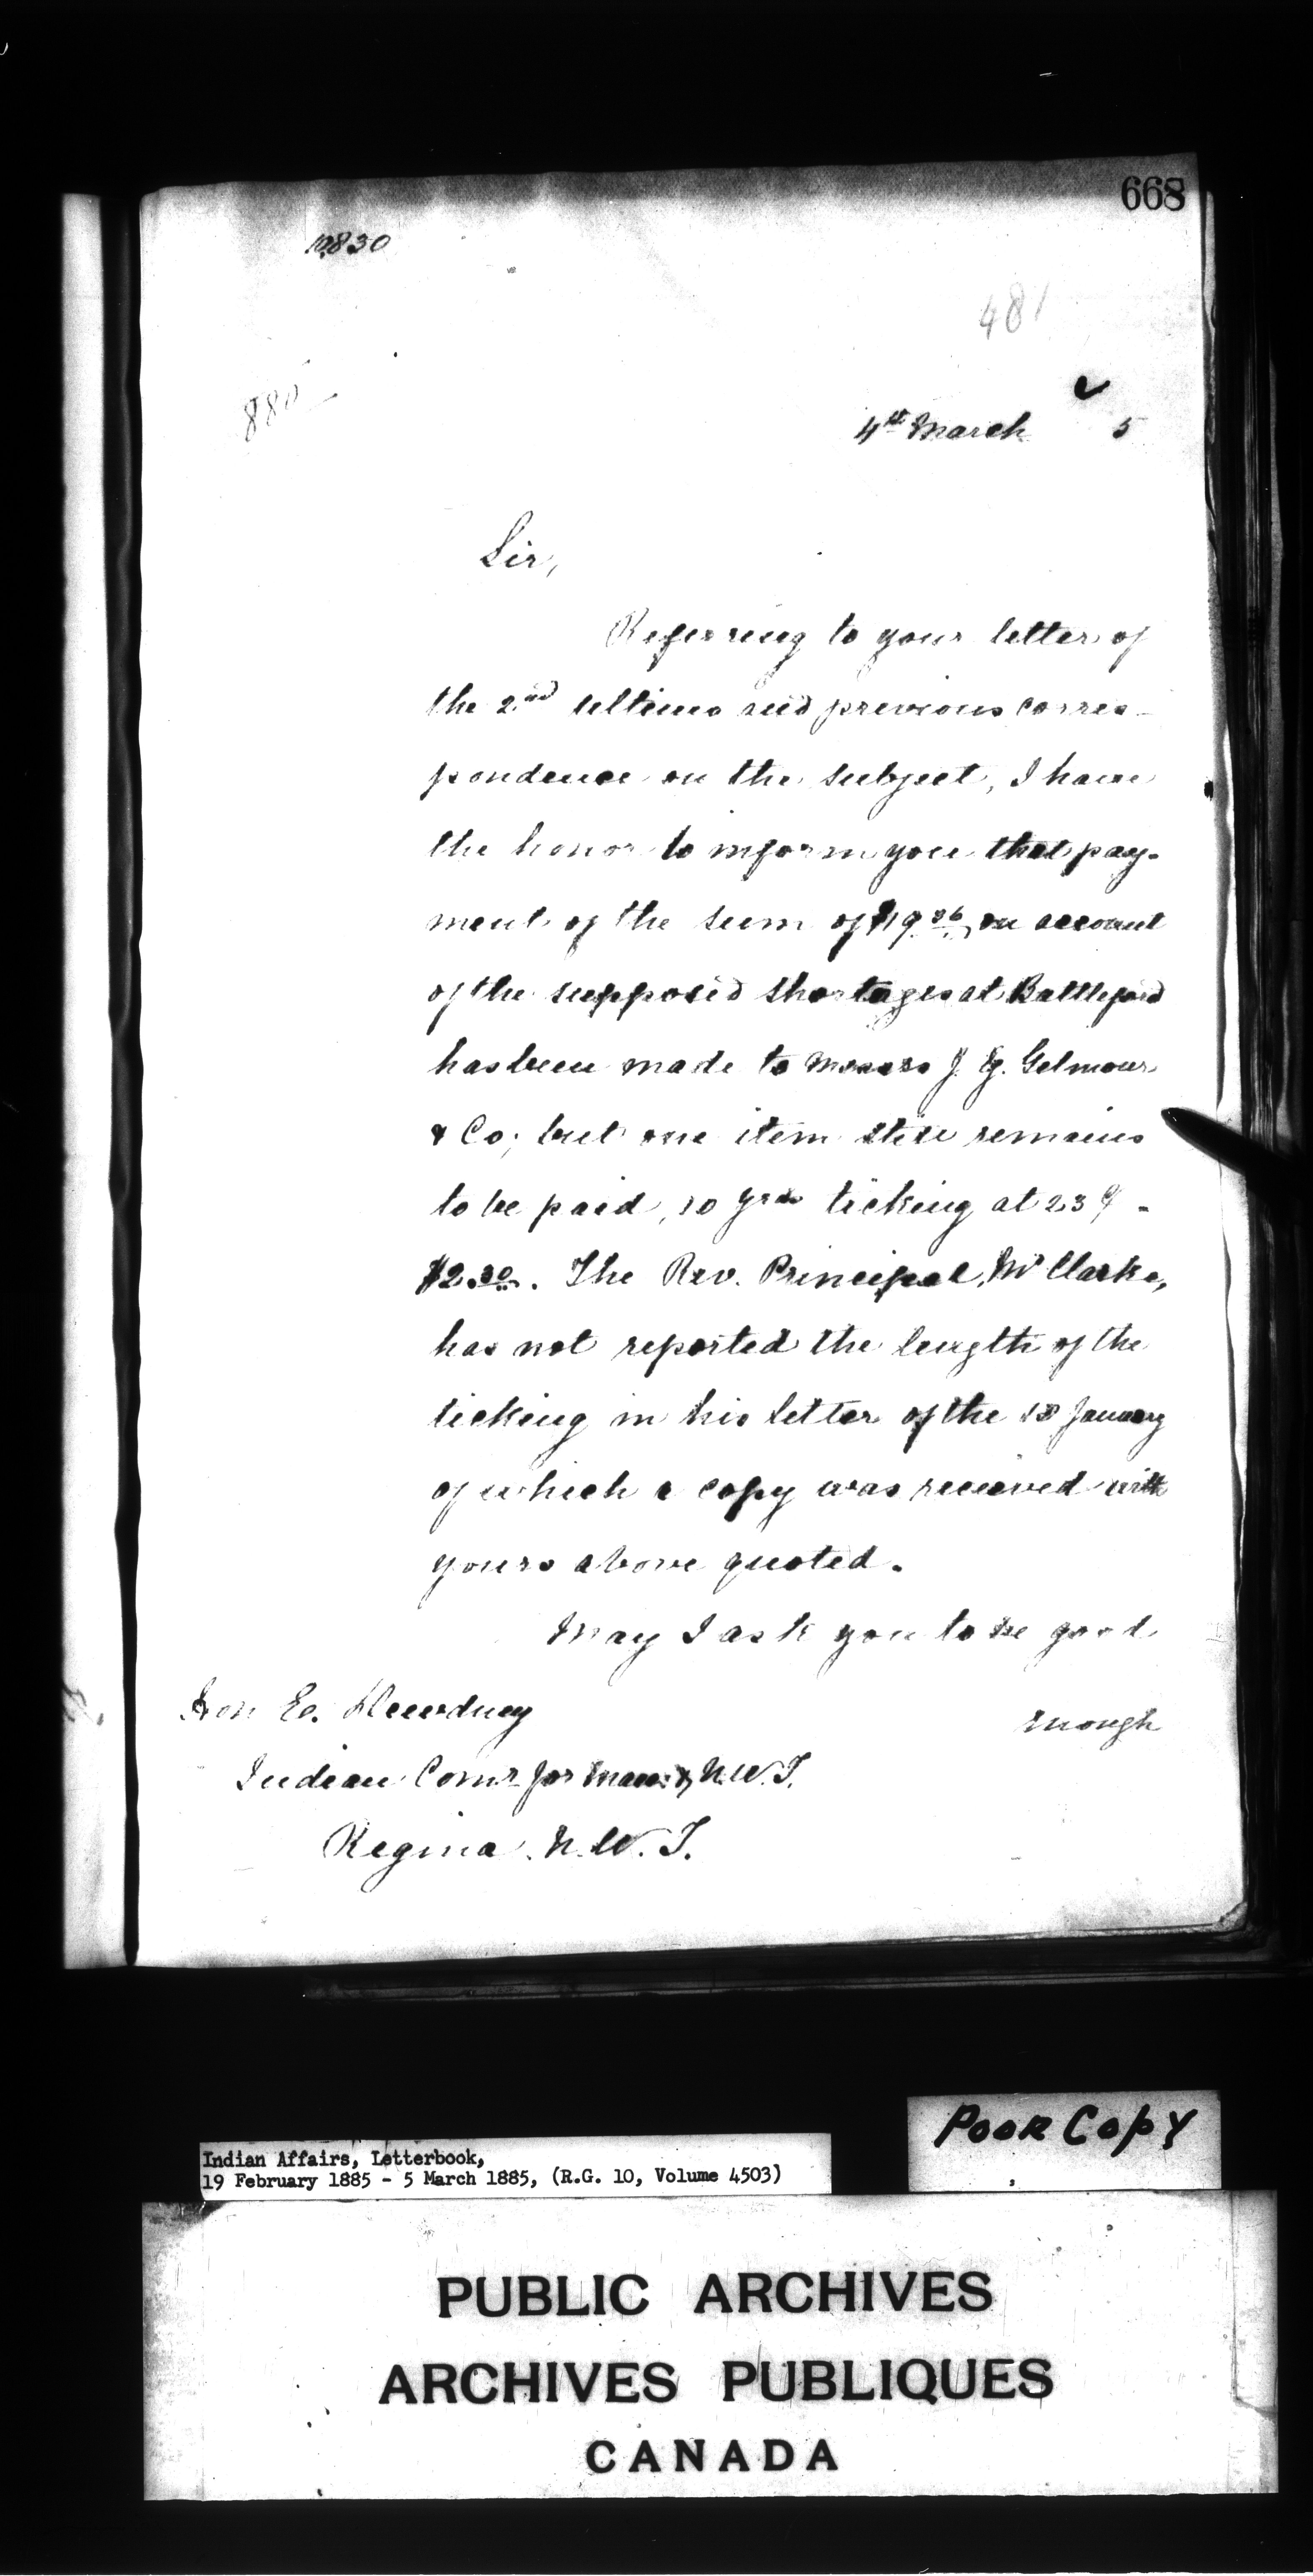 668
19830
481
880
4th March 5
Sir,
Referring to your letter of
the 2nd ultimo and previous corres-
pondence on the subject, I have
the honor to inform you that pay-
ment of the sum of $19.36, on account
of the supposed shortages at Battleford
has been made to Messrs J. G. Gilmour
& Co; but one item still remains
to be paid, 10 yrds ticking at 23¢ -
$2.30. The Rev. Principal, Mr Clarke,
has not reported the length of the
ticking in his letter of the 18 January
of which a copy was received with
yours above quoted.
May I ask you to be good
enough
Hon E. Dewdney
Indian Comr for Man: & N.W.T.
Regina. N.W.T.
Poor Copy
Indian Affairs, Letterbook,
19 February 1885 - 5 March 1885, (R.G. 10, Volume 4503)
PUBLIC ARCHIVES
ARCHIVES PUBLIQUES
CANADA